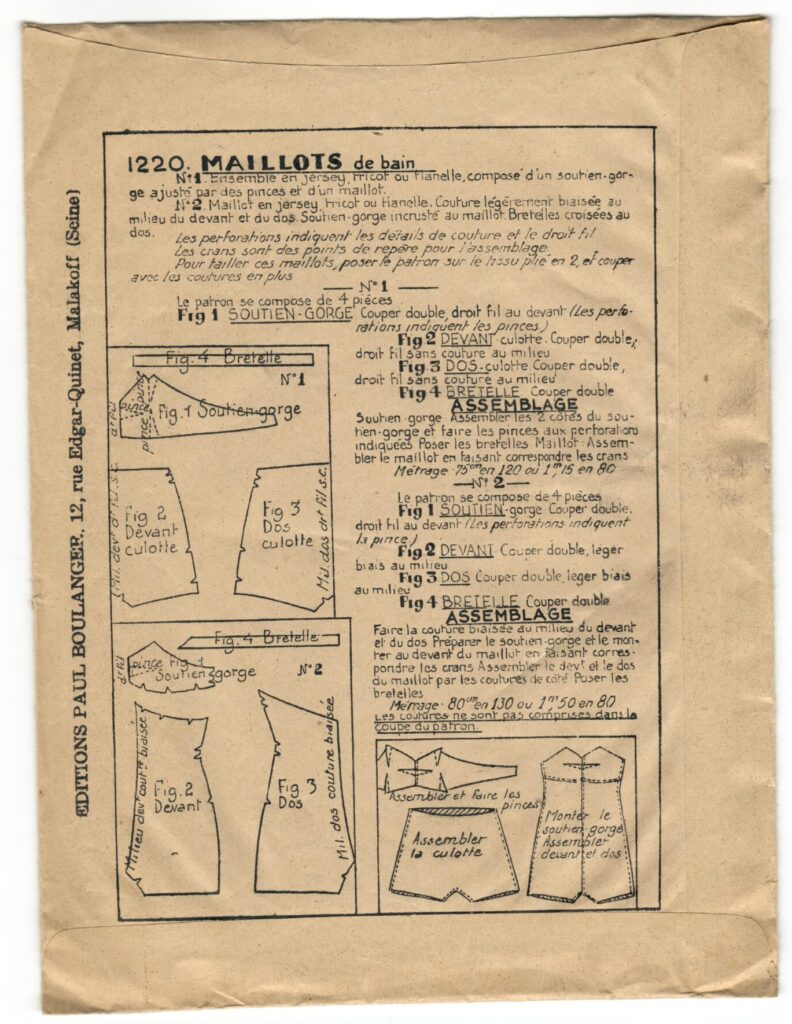 EDITIONS PAUL BOULANGER., 12, rue Edgar-Quinet, Malakoff (Seine)
1220. MAILLOTS de bain
N°1. Ensemble en jersey, tricot ou flanelle, composé d'un soutien-gor-
ge ajusté par des pinces et d'un maillot.
N°2. Maillot en jersey, tricot ou flanelle. Couture légèrement biaisée au
milieu du devant et du dos. Soutien-gorge incrusté au maillot. Bretelles croisées au
dos.
Les perforations indiquent les détails de couture et le droit fil
Les crans sont des points de repère pour l'assemblage.
Pour tailler ces maillots, poser le patron sur le tissu plié en 2, et couper
avec les coutures en plus
— N°1 —
Le patron se compose de 4 pièces
Fig 1 SOUTIEN-GORGE Couper double, droit fil au devant (Les perfo-
rations indiquent les pinces.)
Fig 2 DEVANT culotte. Couper double,
droit fil sans couture au milieu
Fig 3 DOS culotte. Couper double,
droit fil sans couture au milieu
Fig 4 BRETELLE Couper double
ASSEMBLAGE
Soutien-gorge Assembler les 2 cotés du sou-
tien-gorge et faire les pinces aux perforations
indiquées Poser les bretelles Maillot: Assem-
bler le maillot en faisant correspondre les crans
Métrage 75cm en 120 ou 1m,15 en 80
— N°2 —
Le patron se compose de 4 pièces
Fig 1 SOUTIEN-gorge Couper double,
droit fil au devant (Les perforations indiquent
la pince.)
Fig 2 DEVANT Couper double, leger
biais au milieu
Fig 3 DOS Couper double, leger biais
au milieu
Fig 4 BRETELLE Couper double
ASSEMBLAGE
Faire la couture biaisée au milieu du devant
et du dos Préparer le soutien-gorge et le mon-
ter au devant du maillot en faisant corres-
pondre les crans Assembler le devt et le dos
du maillot par les coutures de côté Poser les
bretelles
Métrage 80cm en 130 ou 1m50 en 80
Les coutures ne sont pas comprises dans la
coupe du patron.
Fig. 4 Bretelle
N°1
dt fil
pince
pince
pince
Fig. 1 Soutien-gorge
Mil. devt dt fil s.c.
Fig 2
Devant
culotte
Fig 3
Dos
culotte
Mil. dos drt fil s.c.
Fig. 4 Bretelle
N°2
dt fil
pince Fig 1
Soutien gorge
Milieu devt coutre biaisée
Fig. 2
Devant
Fig 3
Dos
Mil. dos couture biaisée
Assembler et faire les
pinces
Assembler
la culotte
Monter le
soutien gorge
Assembler
devant et dos